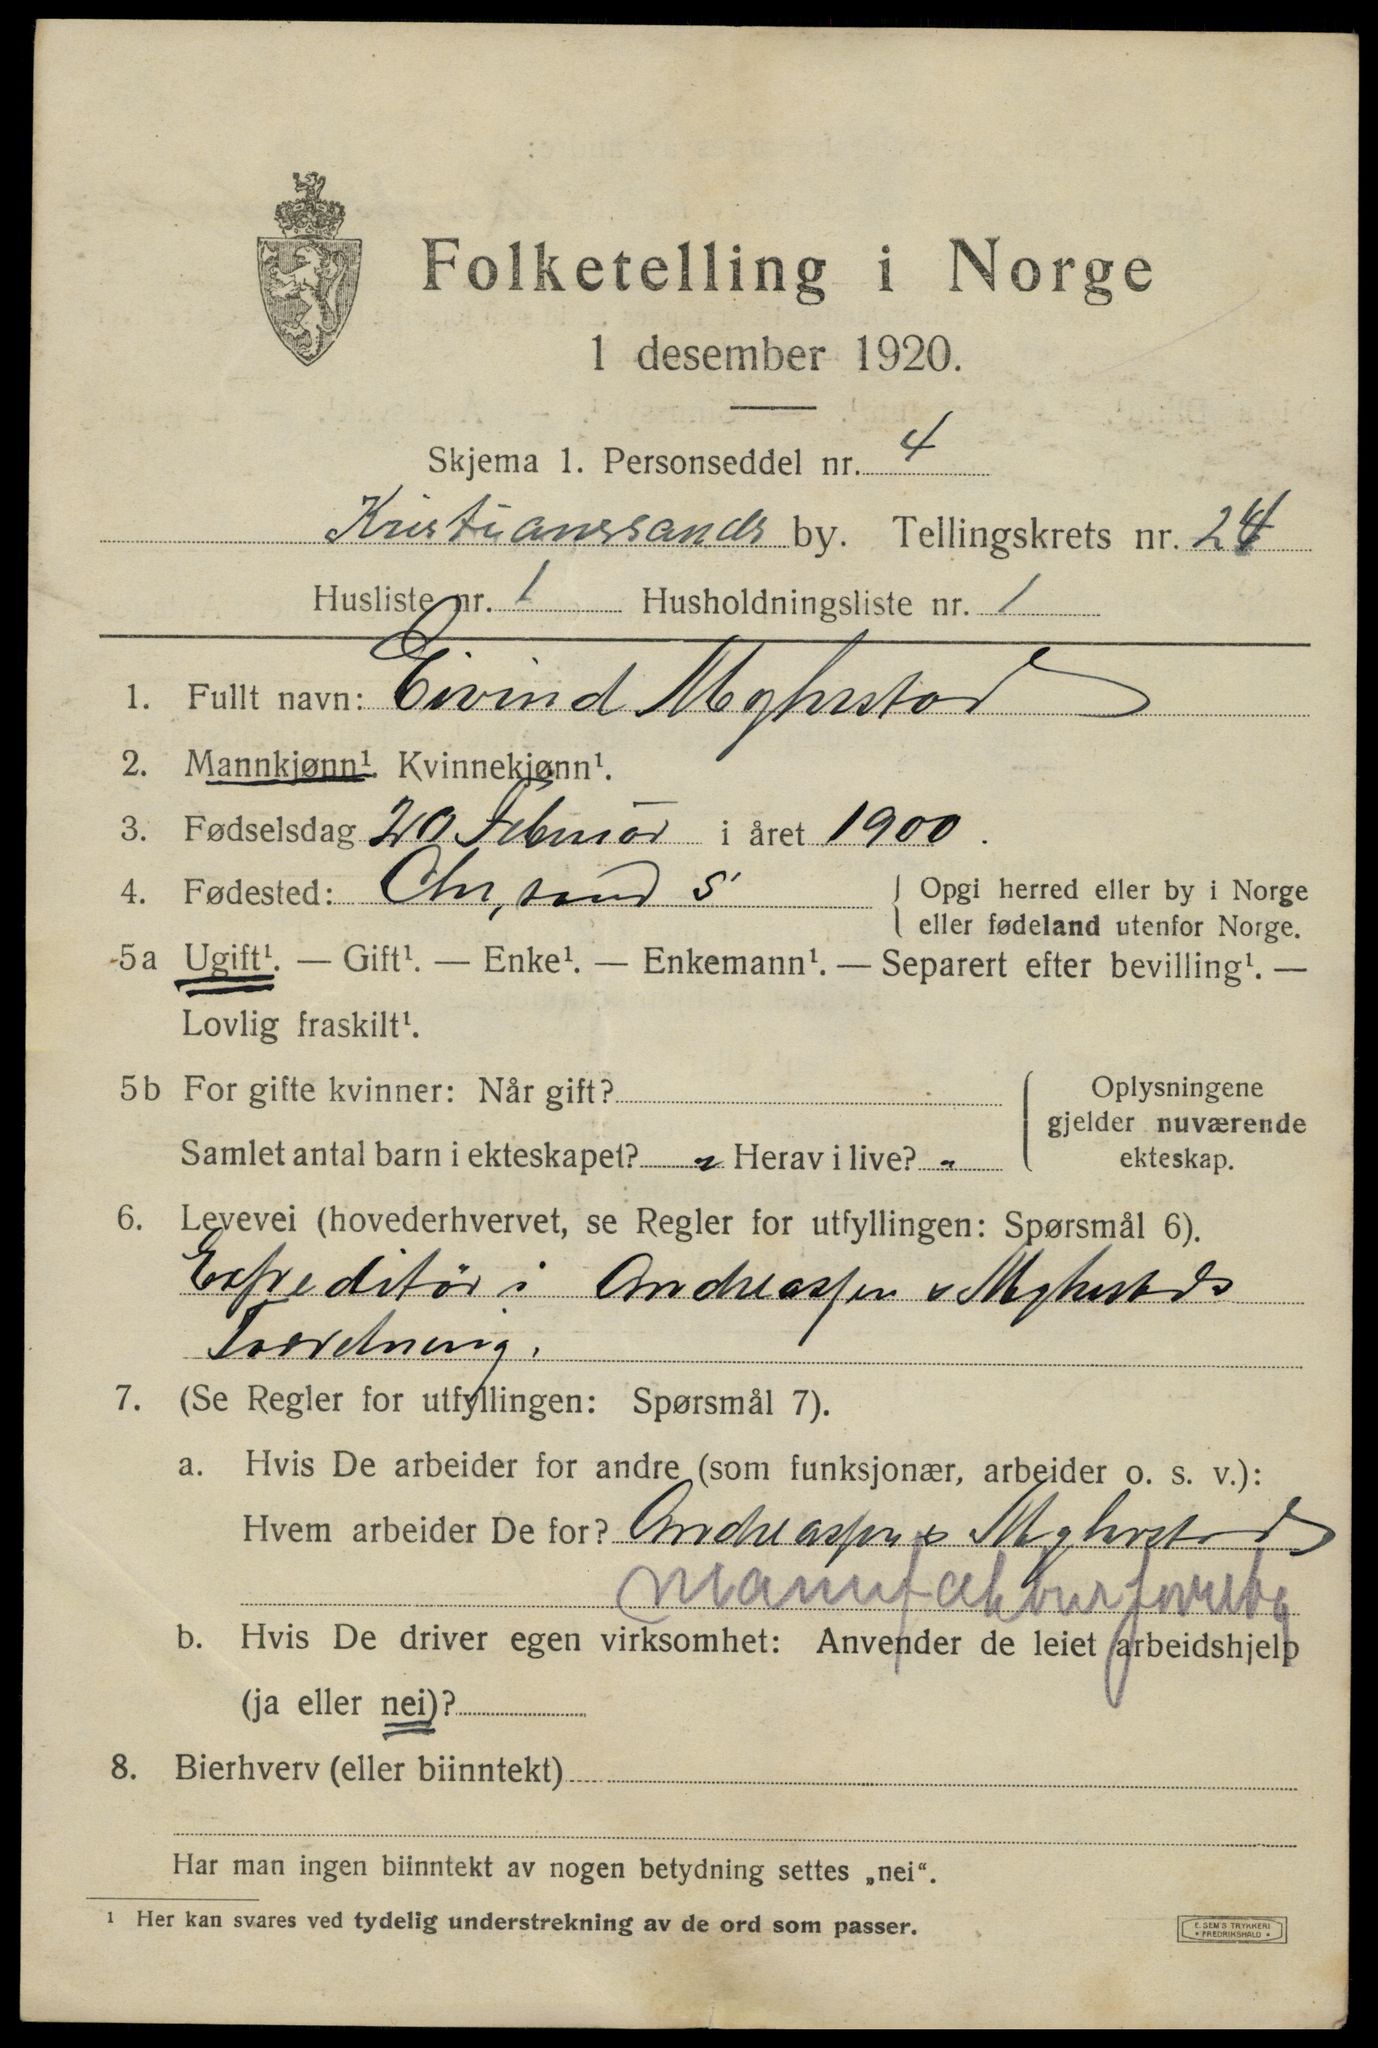 Folketelling i Norge
1 desember 1920.
Skjema 1. Personseddel nr. 4
Kristianssands by. Tellingskrets nr. 24
Husliste nr. 1 Husholdningsliste nr. 1
1. Fullt navn: Eivind Myhrstad
2. Mannkjønn¹. Kvinnekjønn¹.
3. Fødselsdag 20 Februar i året 1900.
4. Fødested: Chr,sand S
Opgi herred eller by i Norge
eller fødeland utenfor Norge.
5a Ugift¹. — Gift¹. — Enke¹. — Enkemann¹. — Separert efter bevilling¹. —
Lovlig fraskilt¹.
5b For gifte kvinner: Når gift?
Samlet antal barn i ekteskapet? „ Herav i live? „
Oplysningene
gjelder nuværende
ekteskap.
6. Levevei (hovederhvervet, se Regler for utfyllingen: Spørsmål 6).
Expeditør i Andreassen & Myhrstads
7. (Se Regler for utfyllingen: Spørsmål 7).
a. Hvis De arbeider for andre (som funksjonær, arbeider o. s. v.):
Hvem arbeider De for? Andreassen & Myhrstad
Manufakturforretng
b. Hvis De driver egen virksomhet: Anvender de leiet arbeidshjelp
(ja eller nei)?
8. Bierhverv (eller biinntekt)
Har man ingen biinntekt av nogen betydning settes „nei“.
¹ Her kan svares ved tydelig understrekning av de ord som passer.
E. SEM'S TRYKKERI
• FREDRIKSHALD •